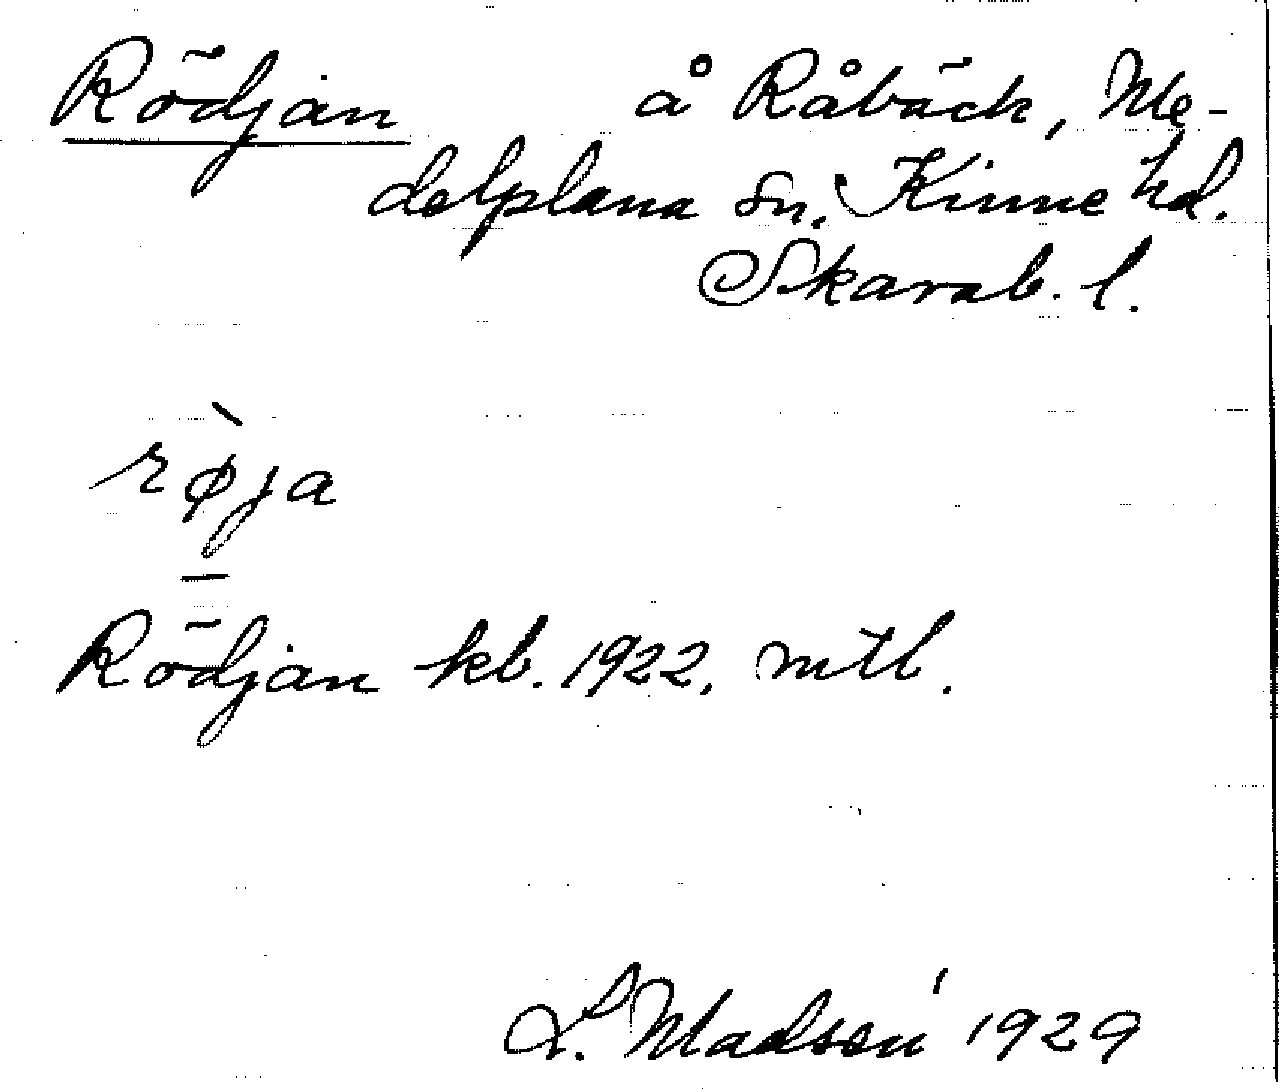 Rödjan å Råbäck, Me-
delplana sn. Kinne hd.
Skarab. l.
rø̀ja
Rödjan kb. 1922, mtl.
L. Madsén 1929